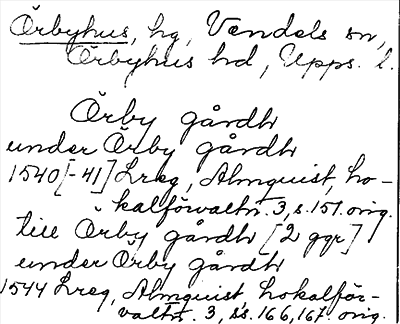 Örbyhus, hg, Vendels sn,
Örbyhus hd, Upps. l.
Örby gårdh
under Örby gårdh
1540[-41] Lreg, Almquist, Lo-
kalförvaltn. 3, s. 151. orig.
till Örby gårdh [2 ggr]
under Örby gårdh
1544 Lreg, Almquist, Lokalför-
valtn. 3, ss. 166, 167. orig.